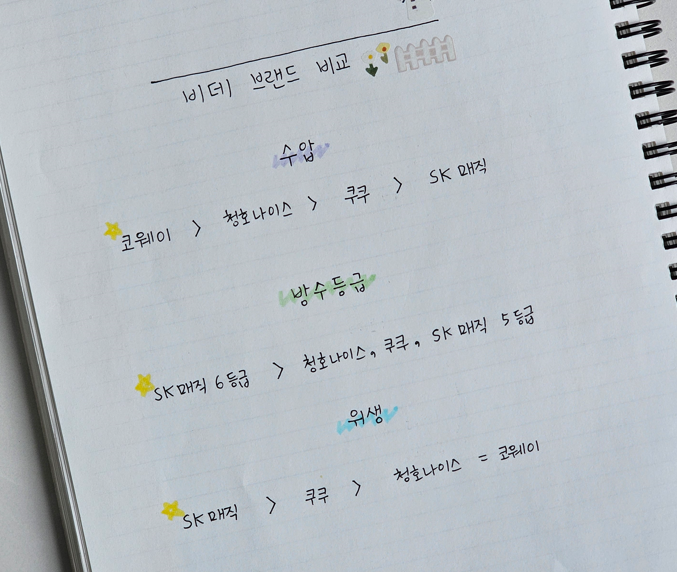 비데 브랜드 비교
수압
코웨이 > 청호나이스 > 쿠쿠 > SK 매직
방수등급
SK매직 6등급 > 청호나이스, 쿠쿠, SK 매직 5등급
위생
SK매직 > 쿠쿠 > 청호나이스 = 코웨이